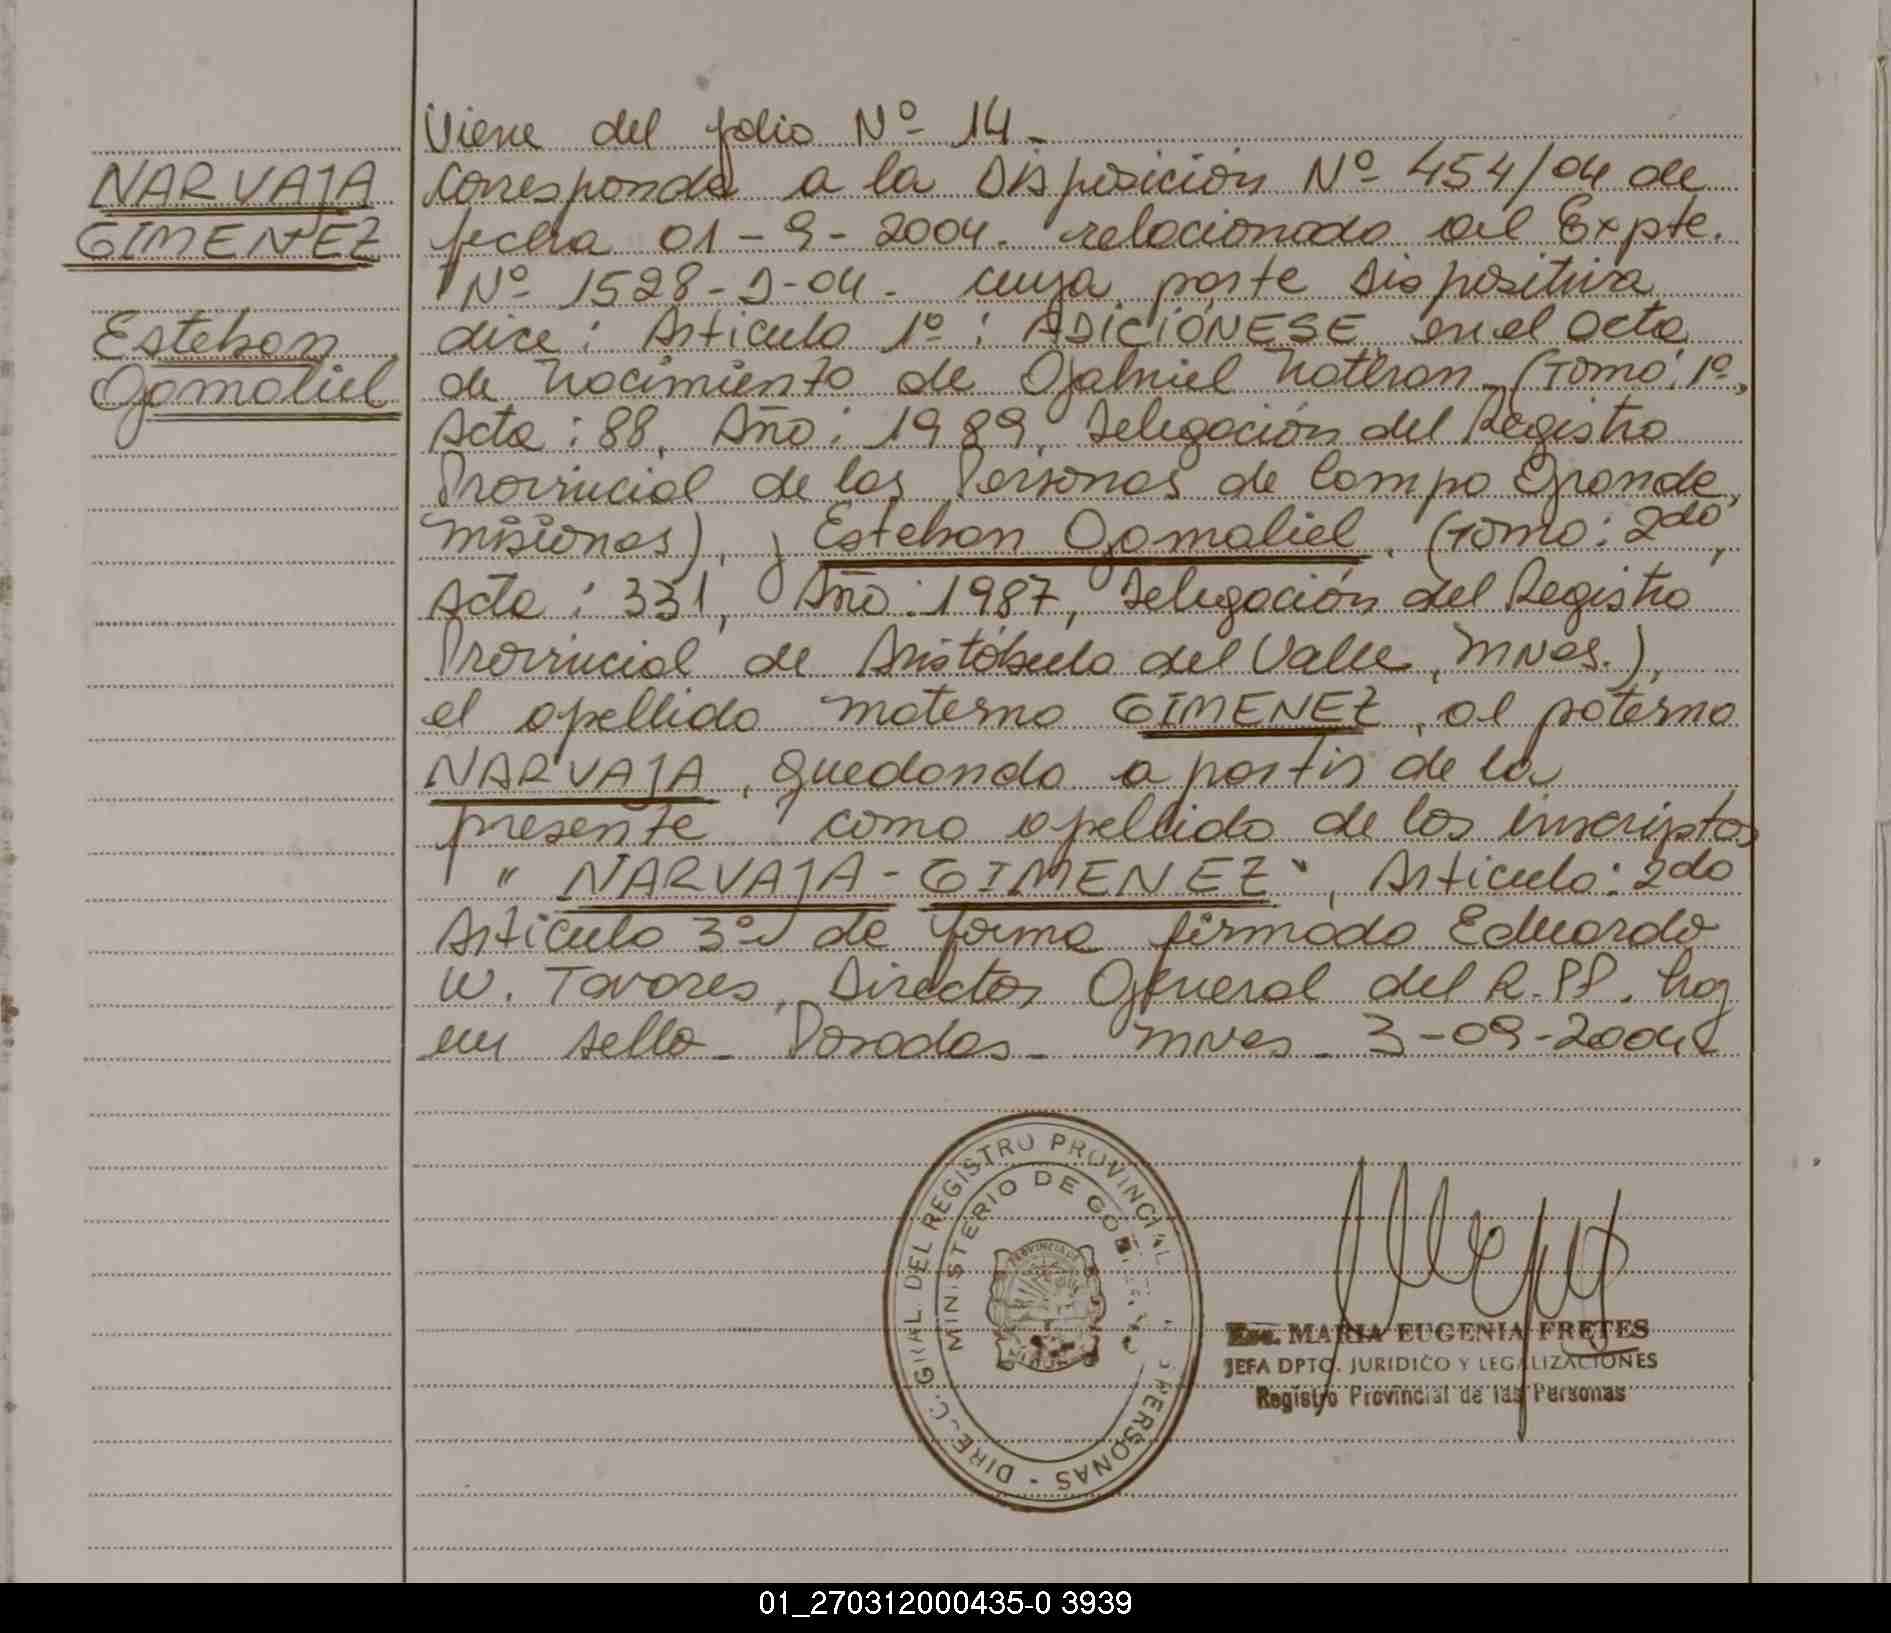 Viene del folio Nº 14-
NARVAJA
GIMENEZ
Esteban
Gamaliel
Corresponde a la Disposición Nº 454/04 de
fecha 01-9-2004. relacionado al Expte.
Nº 1528-D-04- cuya parte dispositiva
dice: Articulo 1º: ADICIÓNESE en el acta
de nacimiento de Gabriel Nathan (Tomo: 1º,
Acta: 88, Año: 1989, Delegación del Registro
Provincial de las Personas de Campo Grande,
Misiones), y Esteban Gamaliel, (Tomo: 2do,
Acta: 331, Año: 1987, Delegación del Registro
Provincial de Aristóbulo del Valle, Mnes.),
el apellido materno GIMENEZ, al paterno
NARVAJA, quedando a partir de la
presente como apellido de los inscriptos
" NARVAJA-GIMENEZ", Articulo: 2do
Articulo 3º de forma firmado Eduardo
W. Tavares, Director General del R.PP. hay
un sello- Posadas- Mnes- 3-09-2004
DIRECC. GRAL. DEL REGISTRO PROVINCIAL PERSONAS -
MINISTERIO DE GOBI
PROVINCIA DE
Esc. MARIA EUGENIA FRETES
JEFA DPTO. JURIDICO Y LEGALIZACIONES
Registro Provincial de las Personas
01_270312000435-0 3939